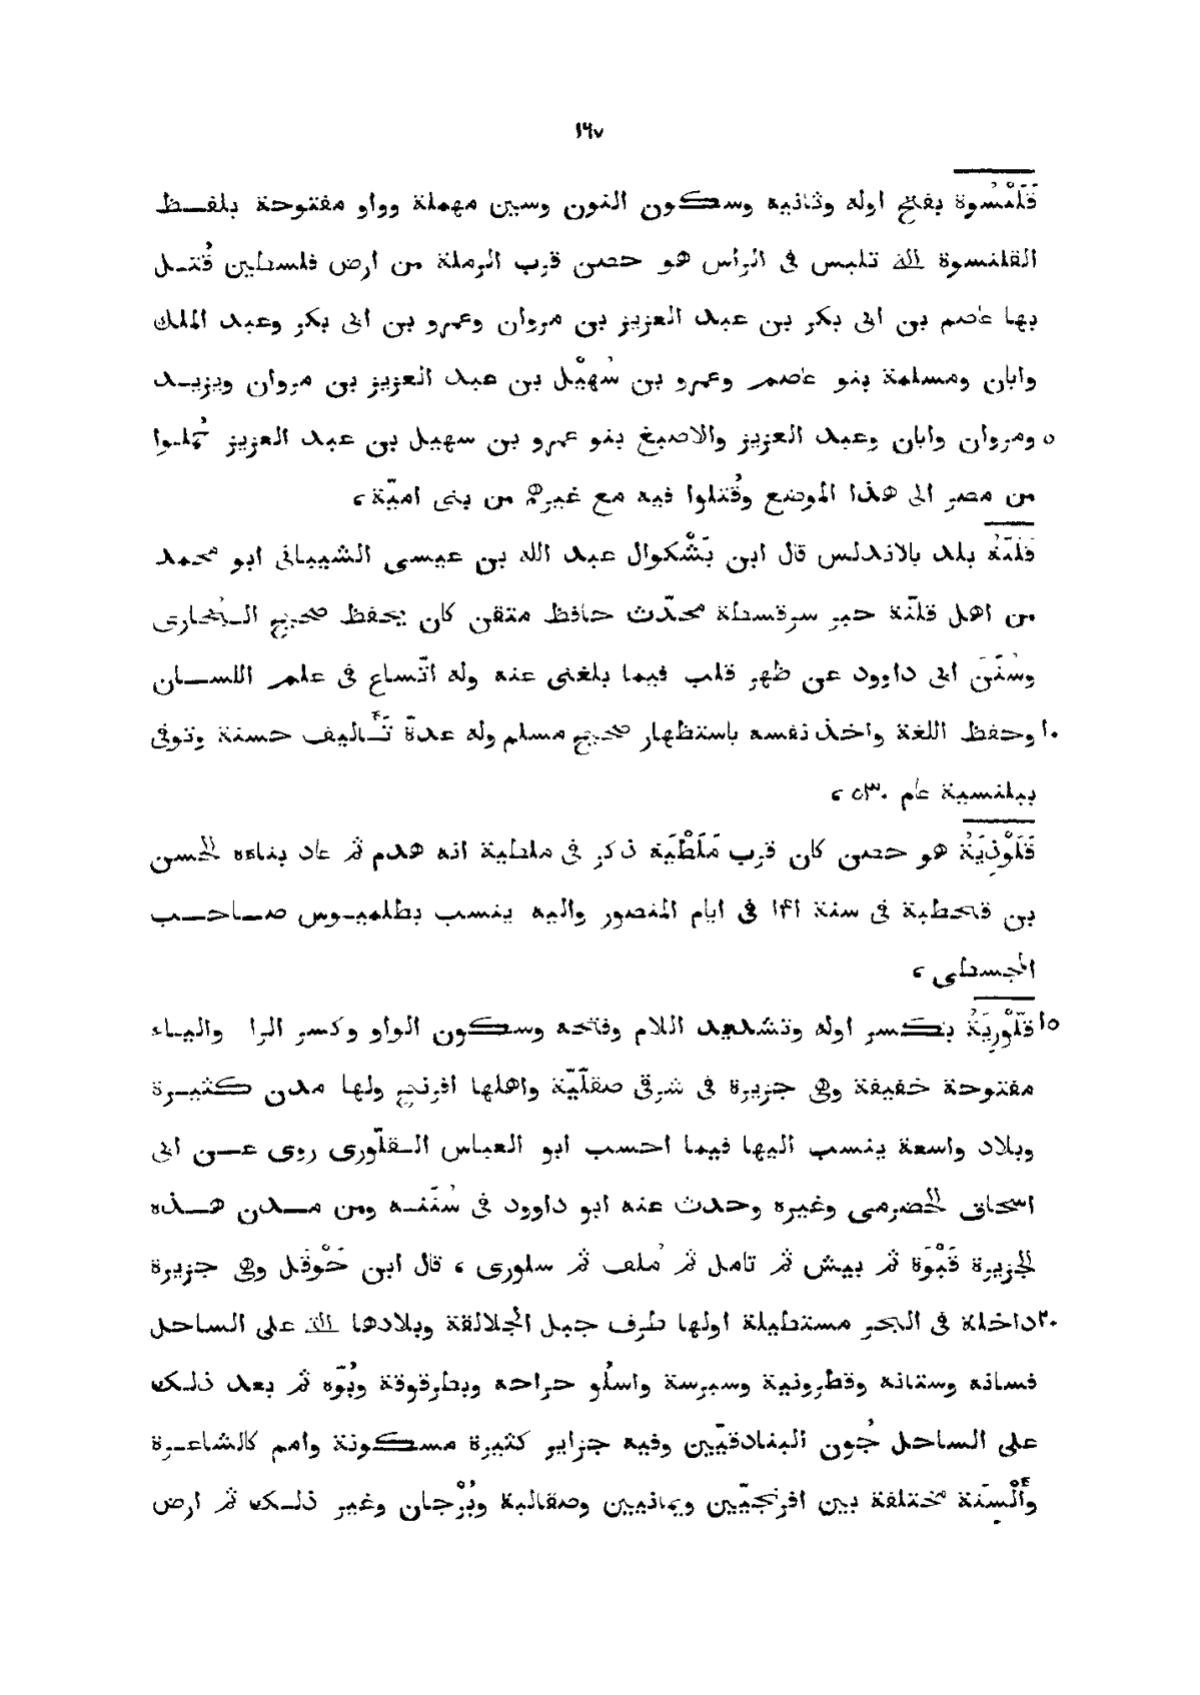 ١٦٧
قَلَنْسُوة بفتح اوله وثانيه وسكون النون وسين مهملة وواو مفتوحة بلفظ
القلنسوة التى تلبس فى الراس هو حصن قرب الرملة من ارض فلسطين قُتل
بها عاصم بن ابى بكر بن عبد العزيز بن مروان وعمرو بن ابى بكر وعبد الملك
وابان ومسلمة بنو عاصم وعمرو بن سُهيْل بن عبد العزيز بن مروان ويزيد
٥ ومروان وابان وعبد العزيز والاصبغ بنو عمرو بن سهيل بن عبد العزيز حُملوا
من مصر الى هذا الموضع وقُتلوا فيه مع غيرهم من بنى اميّة،
قَلَنَّةُ بلد بالاندلس قال ابن بَشْكوال عبد الله بن عيسى الشيبانى ابو محمد
من اهل قلنّة حيز سرقسطة محدّث حافظ متقن كان يحفظ صحيح البُخارى
وسُنَنَ ابى داوود عن ظهر قلب فيما بلغنى عنه وله اتّساع فى علم اللسان
١٠ وحفظ اللغة واخذ نفسه باستظهار صحيح مسلم وله عدّة تَأليف حسنة وتوفى
ببلنسية عام ٥٣٠،
قَلَوْذِيَةُ هو حصن كان قرب مَلَطْيَه ذكر فى ملطية انه هدم ثم عاد بناءه الحسن
بن قحطبة فى سنة ١٤١ فى ايام المنصور واليه ينسب بطلميوس صاحب
المجسطى،
١٥ قِلَّوْرِيَةُ بكسر اوله وتشديد اللام وفتحه وسكون الواو وكسر الرا والياء
مفتوحة خفيفة وهى جزيرة فى شرقى صقلّيّة واهلها افرنج ولها مدن كثيرة
وبلاد واسعة ينسب اليها فيما احسب ابو العباس القلّورى روى عن ابى
اسحاق الحضرمى وغيره وحدث عنه ابو داوود فى سُنَنه ومن مدن هذه
الجزيرة قَبْوَة ثم بيش ثم تامل ثم مُلف ثم سلورى، قال ابن حَوْقَل وهى جزيرة
٢٠ داخلة فى البحر مستطيلة اولها طرف جبل الجلالقة وبلادها التى على الساحل
فسانه وستانه وقطرونية وسبرسة واسلُو حراحه وبطرقوقة وبُوّه ثم بعد ذلك
على الساحل جُون البنادقيّين وفيه جزاير كثيرة مسكونة وامم كالشاعرة
وأَلْسِنَة مختلفة بين افرنجيّين ويمانيين وصقالبة وبُرْجان وغير ذلك ثم ارض